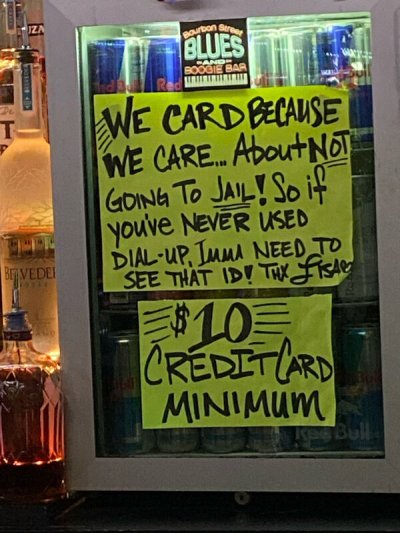 Bourbon Street
BLUES
-AND-
BOOGIE BAR
WE CARD BECAUSE
WE CARE... About NOT
GOING TO JAIL! So if
you've NEVER USED
DIAL-UP, Imma NEED TO
SEE THAT ID! THX
$10
CREDIT CARD
MINIMUM
Red Bull
BELVEDE